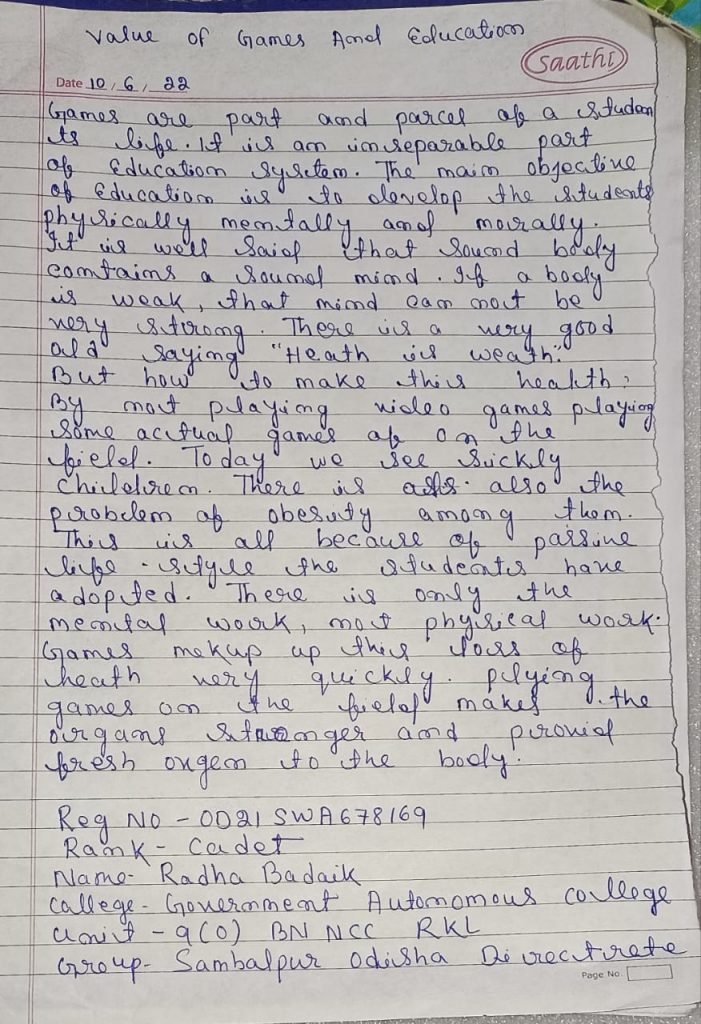 Value of Games And Education
Saathi
Date 10 / 6 / 22
Games are part and parcel of a studen
ts life. It is an inseparable part
of Education System. The main objective
of Education is to develop the students
physically mentally and morally.
It is well Said that Sound body
contains a Sound mind. If a body
is weak, that mind can not be
very strong. There is a very good
old saying "Heath is weath".
But how to make this health?
By not playing video games playing
Some acitual games of on the
field. Today we see Sickly
Children. There is also the
problem of obesity among them.
This is all because of passive
life-style the students have
adopted. There is only the
mental work, not physical work.
Games mekup up this loss of
heath very quickly. plying
games on the field makes the
organs stronger and provid
fresh oxgen to the body.
Reg No - OD21SWA678169
Rank - Cadet
Name - Radha Badaik
College - Government Autonomous college
Unit - 9(O) BN NCC RKL
Group - Sambalpur Odisha Directrete
Page No.